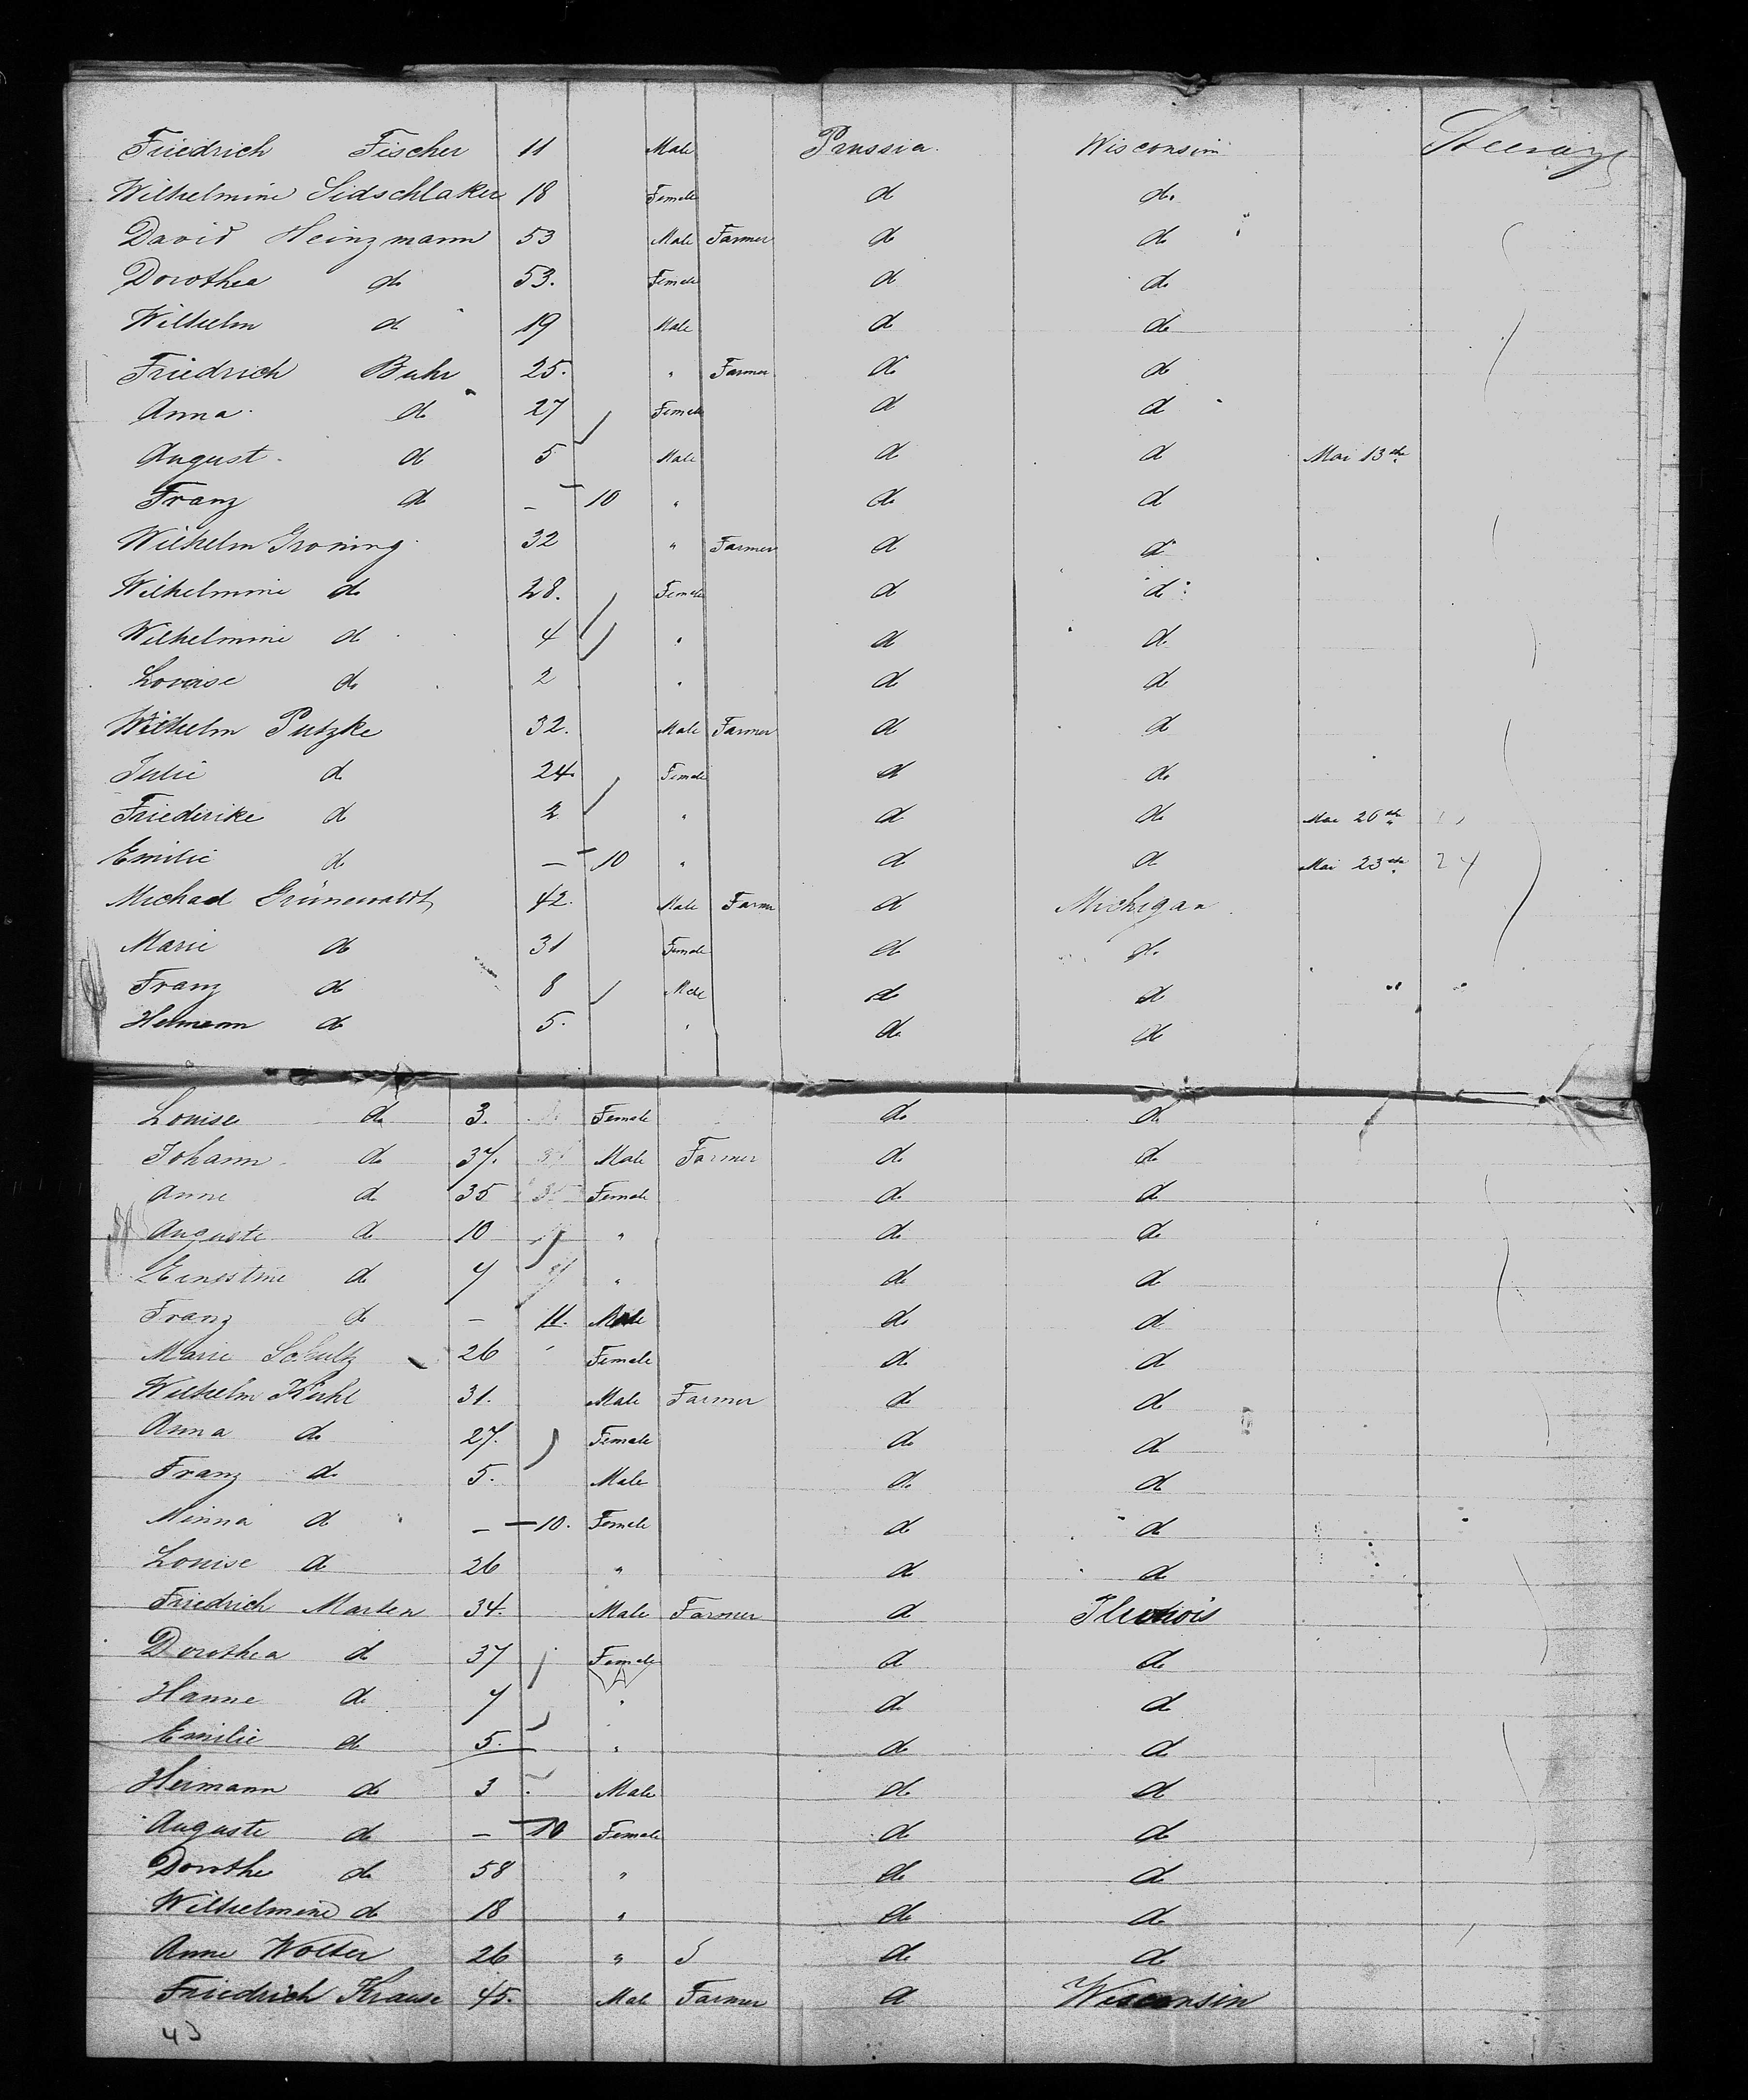 Friedrich Fischer 11 Male Prussia. Wisconsin Steerage
Wilhelmine Sidschlaker 18 Female do do.
David Heinzmann 53 Male Farmer do do
Dorothea do 53. Female do do
Wilhelm do 19 Male do do
Friedrich Buhr 25. " Farmer do do
Anna do 27 Female do do
August do 5 Male do do Mai 13th
Franz do — 10 " do do
Wilhelm Groning 32 " Farmer do do
Wilhelmine do 28. Female do do
Wilhelmine do 4 " do do
Lovise do 2 " do do
Wilhelm Putzke 32. Male Farmer do do
Julie do 24. Female do do
Friederike do 2 " do do Mai 20th
Emilie do — 10 " do do Mai 23th 24
Michael Grünewaldt 42. Male Farmer do Michigan
Marie do 31 Female do do
Franz do 8 Male do do
Hermann do 5. " do do
Louise do 3. Female do do
Johann do 37. Male Farmer do do
Anne do 35 Female do do
Auguste do 10 " do do
Ernestine do 7 " do do
Franz do — 11. Male do do
Marie Schultz 26 Female do do
Wilhelm Kuhl 31. Male Farmer do do
Anna do 27. Female do do
Franz do 5. Male do do
Minna do — 10. Female do do
Louise do 26 " do do
Friedrich Marten 34. Male Farmer do Illinois
Dorothea do 37 Female do do
Hanne do 7 " do do
Emilie do 5. " do do
Hermann do 3 Male do do
Auguste do — 10 Female do do
Dorothe do 58 " do do
Wilhelmine do 18 " do do
Anne Wolter 26 " do do
Friedrich Krause 45. Male Farmer do Wisconsin
43